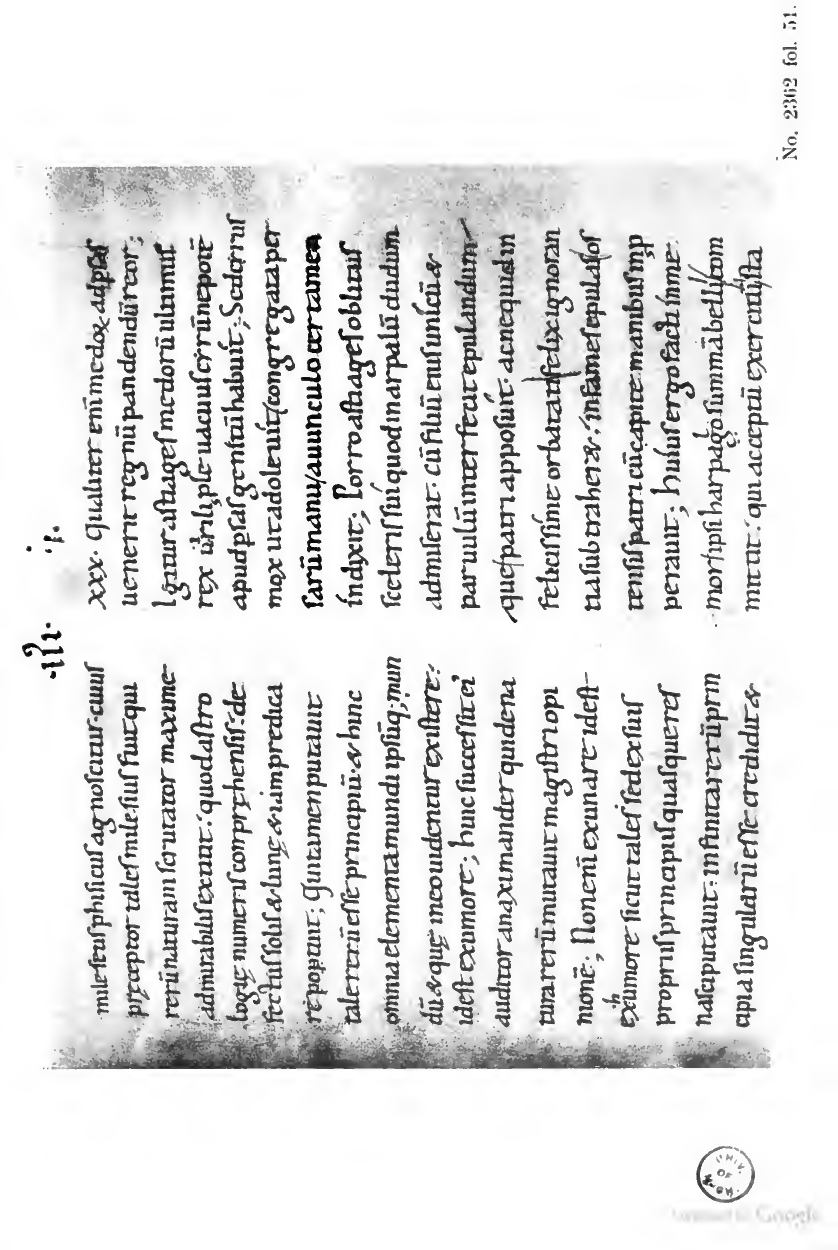 No. 2362 fol. 51.
·ııı· ·ı·
mileseus phisicus agnoscitur· cuius
pręceptor tales milesius fuit qui
rerū naturam scrutator maxime
admirabilis extitit: quod astro
logię numeris comprehensis: de
fectus solis & lunę & iam predica
Qui tamen putauit
tale rerū esse principiū· & hinc
omnia elementa mundi ipsūq; mun
dū & quę in eo uidentur existere:
id est ex umore; huic successit ei
auditor anaximander qui de na
tura rerū mutauit magistri opi
monē; Non enī ex una re id est
ex umore sicut tales sed ex suis
propriis principiis quasque res
nasci putauit: infinita rerū prin
cipia singularū esse credidit &
xxx· Qualiter enī medoꝝ ad p̄sas
uenerit regnū pandendū reor;
Igitur astiages medorū ultimus
apud p̄sas genitū habuit; Sed cirrus
mox ut adoleuit congregata per
sarū manu auunculo certamen
indixit; Porro astiages oblitus
sceleris sui quod in arpalū dudum
admiserat· cū filiū eius unicū &
paruulū interfecit epulandum
que patri apposuit: ac ne quid in
felicissime orbatati felix ignoran
tia subtraheret: infames epulas os
tensis patri cū capite manibus imp
perauit; huius ergo facti inme
mor ipsi harpago summā belli com
mittit: qui acceptū exercitū sta